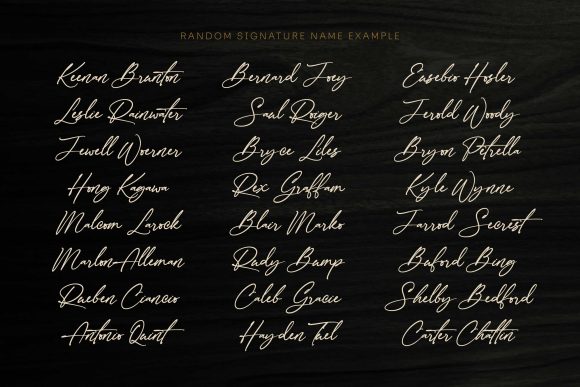 RANDOM SIGNATURE NAME EXAMPLE
Keenan Brunton Bernard Joey Eusebio Hosler
Leslie Rainwater Saul Roiger Jerold Woody
Jewell Woerner Bryce Liles Bryon Petrella
Hong Kagawa Rex Graffam Kyle Wynne
Malcom Larock Blair Marko Jarrod Secrest
Marlon Alleman Rudy Bump Buford Bing
Rueben Ciancio Caleb Gracie Shelby Bedford
Antonio Quint Hayden Tuel Carter Chattin